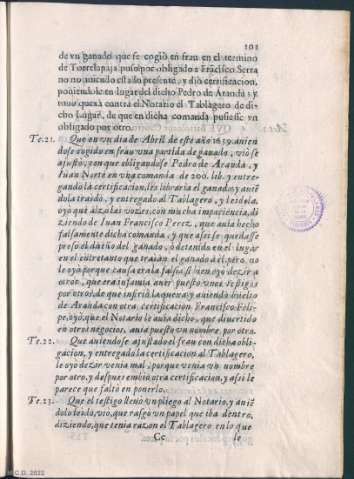 101
de vn ganado que se cogiò en frau en el termino
de Torrelapaja puso por obligado a Frãcisco Serra
no no auiendo estado presente, y diò certificacion,
poniendole en lugar del dicho Pedro de Aranda: y
tuuo quexa contra el Notario el Tablagero de di-
cho lugar, de que en dicha comanda pusiesse vn
obligado por otro.
Te. 21. Que en vn dia de Abril de este año 1639. auien
dose cogido en frau vna partida de ganado, vio se
ajustò, y en que obligandose Pedro de Aranda, y
Iuan Norte en vna comanda de 200. lib. y entre-
gando la certificacion, les libraria el ganado, y auiẽ
dola traido, y entregado al Tablagero, y leidola,
oyò que alzò las vozes, con mucha impaciencia, di
ziendo de Iuan Francisco Perez, que auia hecho
falsamente dicha comanda, y que assi se quedasse
preso el dueño del ganado, ò detenido en el lugar
en el entretanto que traian el ganado à èl, pero no
le oyò porque causa era la falsia, si bien oyò dezir a
otros, que era infamia auer puesto vnos testigos
por otros, de que infiriò la quexa, y auiendo buelto
de Aranda con otra certificacion Francisco Feli-
pe, oyò, que el Notario le auia dicho, que diuertido
en otros negocios, auia puesto vn nombre por otro.
Te. 22. Que auiendose ajustado el frau con dicha obli-
gacion, y entregado la certificacion al Tablagero,
le oyò dezir venia mal, porque venia vn nombre
por otro, y despues embiò otra certificacion, y assi le
parece que faltò en ponerlo.
Te. 23. Que el testigo lleuò vn pliego al Notario, y auiẽ
dolo leido, viò, que rasgò vn papel que iba dentro,
diziendo, que tenia razon el Tablagero en lo que
Cc le
C.D. 2022